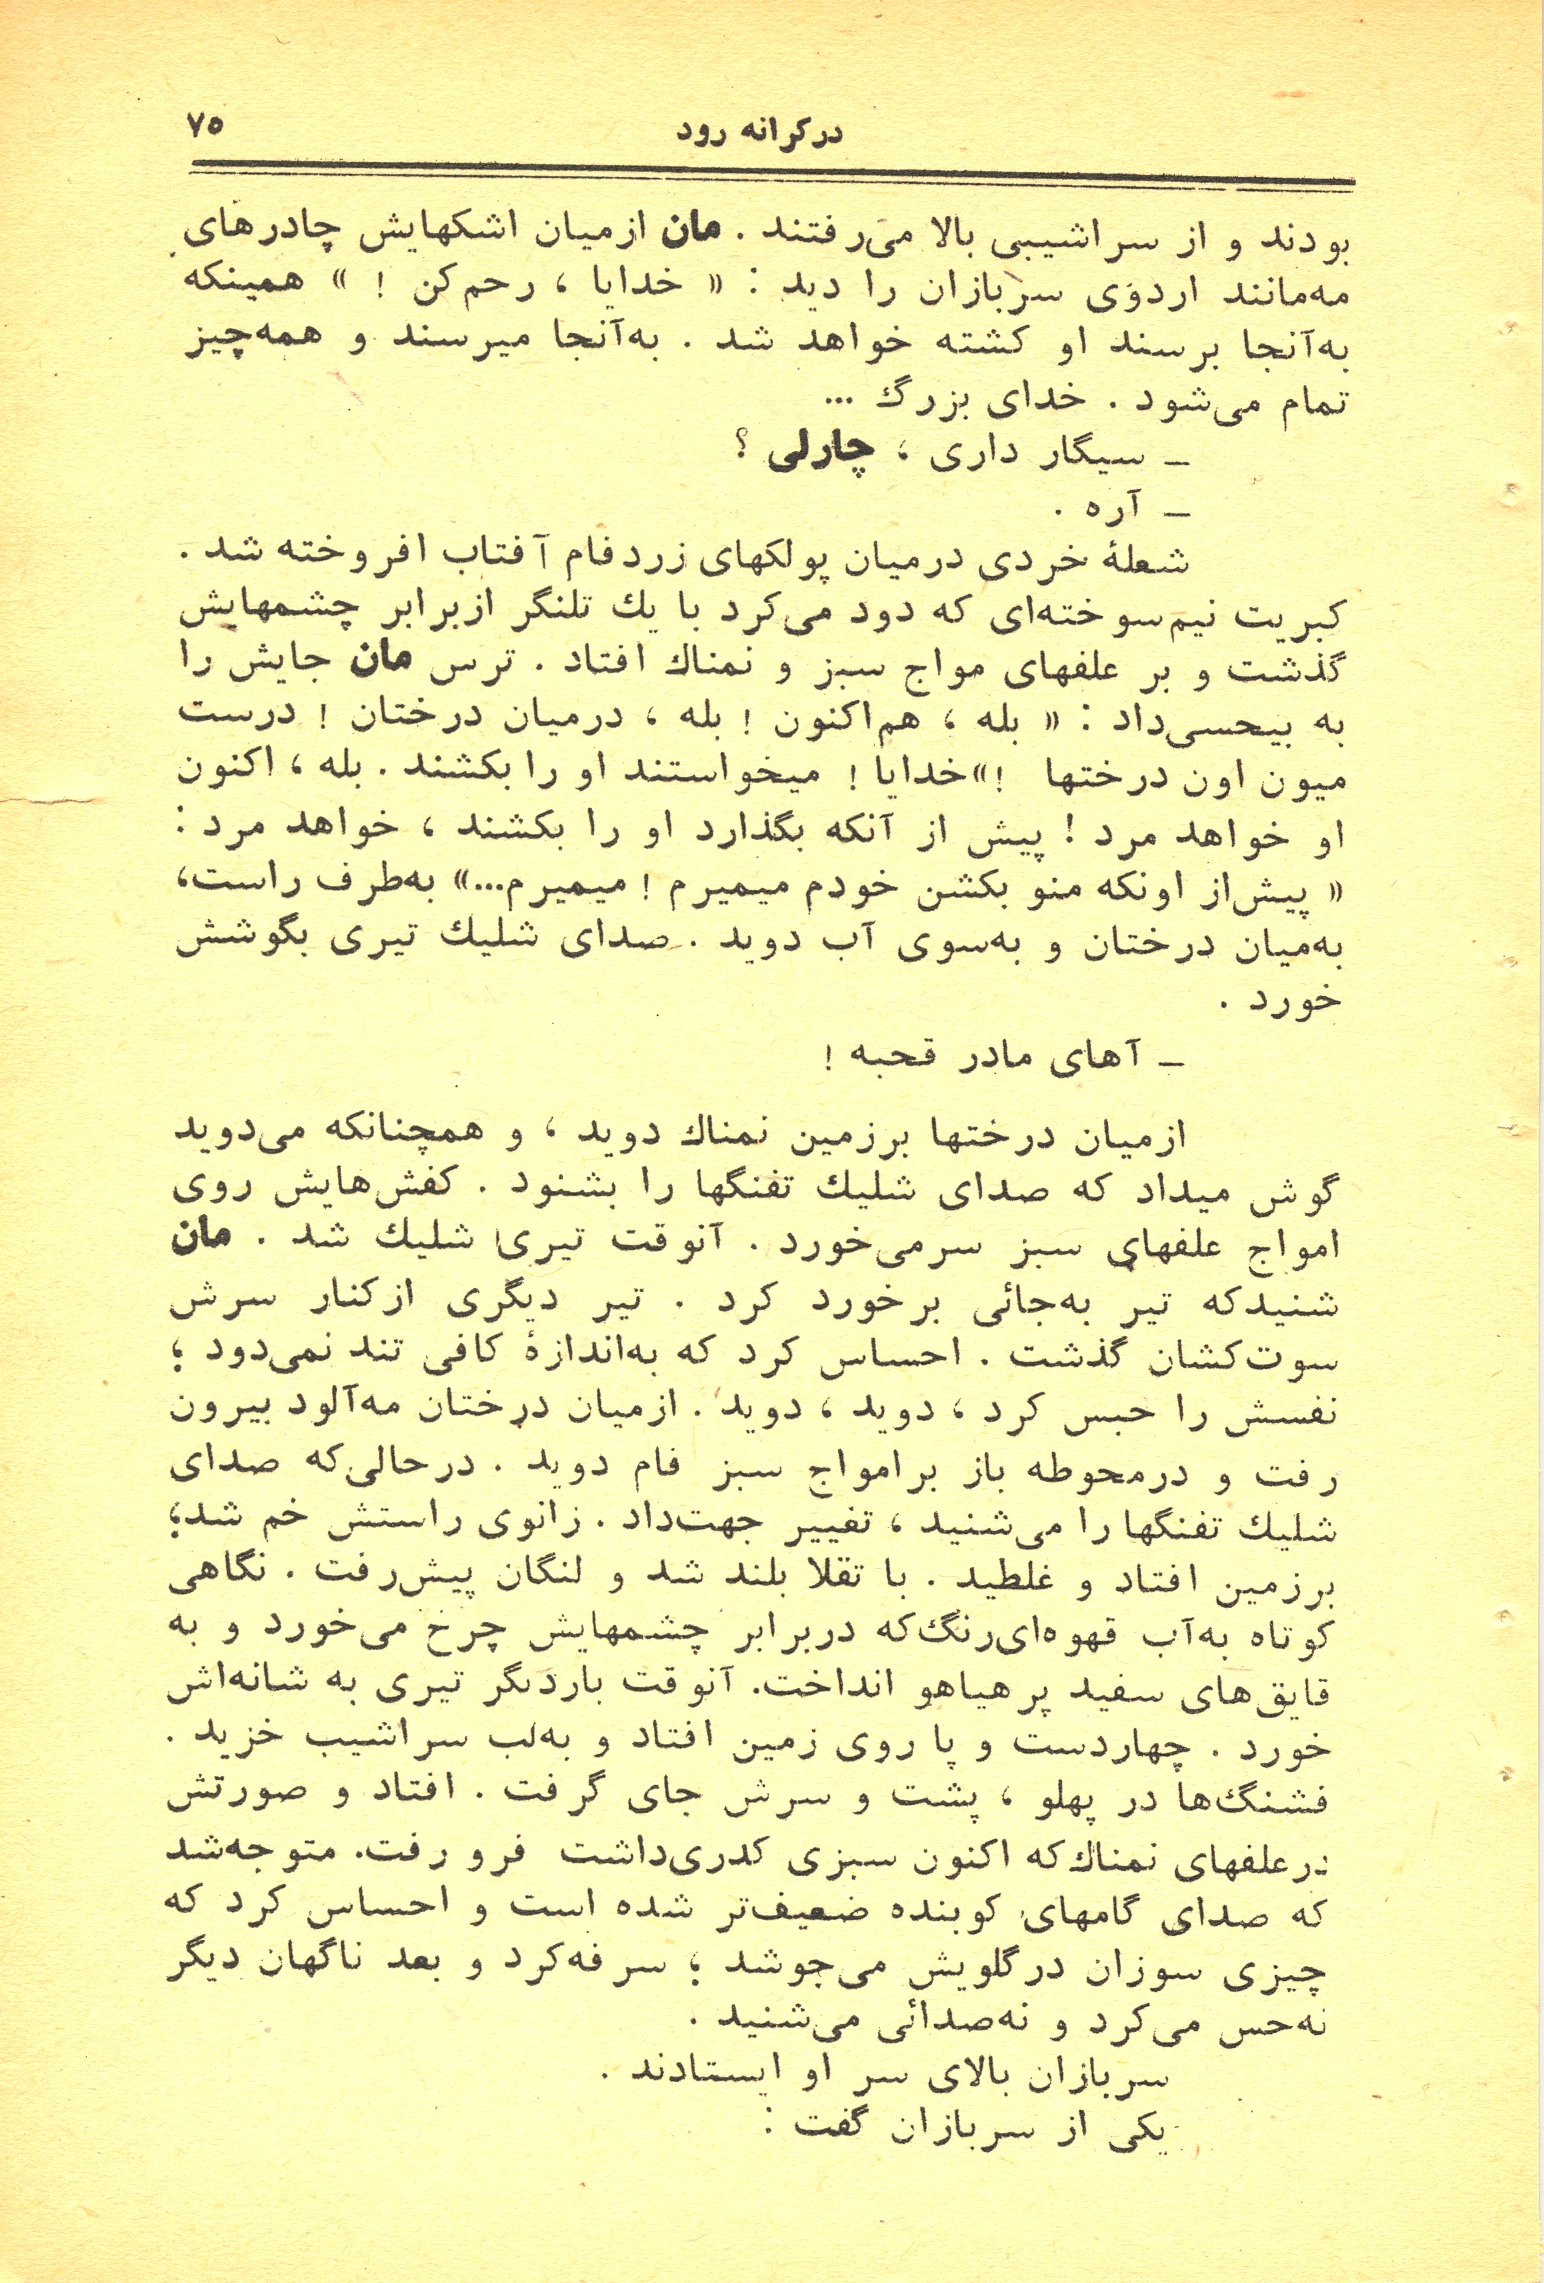 درکرانه رود
۷۵
بودند و از سراشیبی بالا می‌رفتند . مان ازمیان اشکهایش چادرهای
مه‌مانند اردوی سربازان را دید : « خدایا ، رحم‌کن ! » همینکه
به‌آنجا برسند او کشته خواهد شد . به‌آنجا میرسند و همه‌چیز
تمام می‌شود . خدای بزرگ ...
ـ سیگار داری ، چارلی ؟
ـ آره .
شعلهٔ خردی درمیان پولکهای زردفام آفتاب افروخته شد .
کبریت نیم‌سوخته‌ای که دود می‌کرد با یك تلنگر ازبرابر چشمهایش
گذشت و بر علفهای مواج سبز و نمناك افتاد . ترس مان جایش را
به بیحسی‌داد : « بله ، هم‌اکنون ! بله ، درمیان درختان ! درست
میون اون درختها !»خدایا ! میخواستند او را بکشند . بله ، اکنون
او خواهد مرد ! پیش از آنکه بگذارد او را بکشند ، خواهد مرد :
« پیش‌از اونکه منو بکشن خودم میمیرم ! میمیرم...» به‌طرف راست،
به‌میان درختان و به‌سوی آب دوید . صدای شلیك تیری بگوشش
خورد .
ـ آهای مادر قحبه !
ازمیان درختها برزمین نمناك دوید ، و همچنانکه می‌دوید
گوش میداد که صدای شلیك تفنگها را بشنود . کفش‌هایش روی
امواج علفهای سبز سرمی‌خورد . آنوقت تیری شلیك شد . مان
شنیدکه تیر به‌جائی برخورد کرد . تیر دیگری ازکنار سرش
سوت‌کشان گذشت . احساس کرد که به‌اندازهٔ کافی تند نمی‌دود ؛
نفسش را حبس کرد ، دوید ، دوید . ازمیان درختان مه‌آلود بیرون
رفت و درمحوطه باز برامواج سبز فام دوید . درحالی‌که صدای
شلیك تفنگها را می‌شنید ، تغییر جهت‌داد . زانوی راستش خم شد؛
برزمین افتاد و غلطید . با تقلا بلند شد و لنگان پیش‌رفت . نگاهی
کوتاه به‌آب قهوه‌ای‌رنگ‌که دربرابر چشمهایش چرخ می‌خورد و به
قایق‌های سفید پرهیاهو انداخت. آنوقت باردیگر تیری به شانه‌اش
خورد . چهاردست و پا روی زمین افتاد و به‌لب سراشیب خزید .
فشنگ‌ها در پهلو ، پشت و سرش جای گرفت . افتاد و صورتش
درعلفهای نمناك‌که اکنون سبزی کدری‌داشت فرو رفت. متوجه‌شد
که صدای گامهای کوبنده ضعیف‌تر شده است و احساس کرد که
چیزی سوزان درگلویش می‌جوشد ؛ سرفه‌کرد و بعد ناگهان دیگر
نه‌حس می‌کرد و نه‌صدائی می‌شنید .
سربازان بالای سر او ایستادند .
یکی از سربازان گفت :